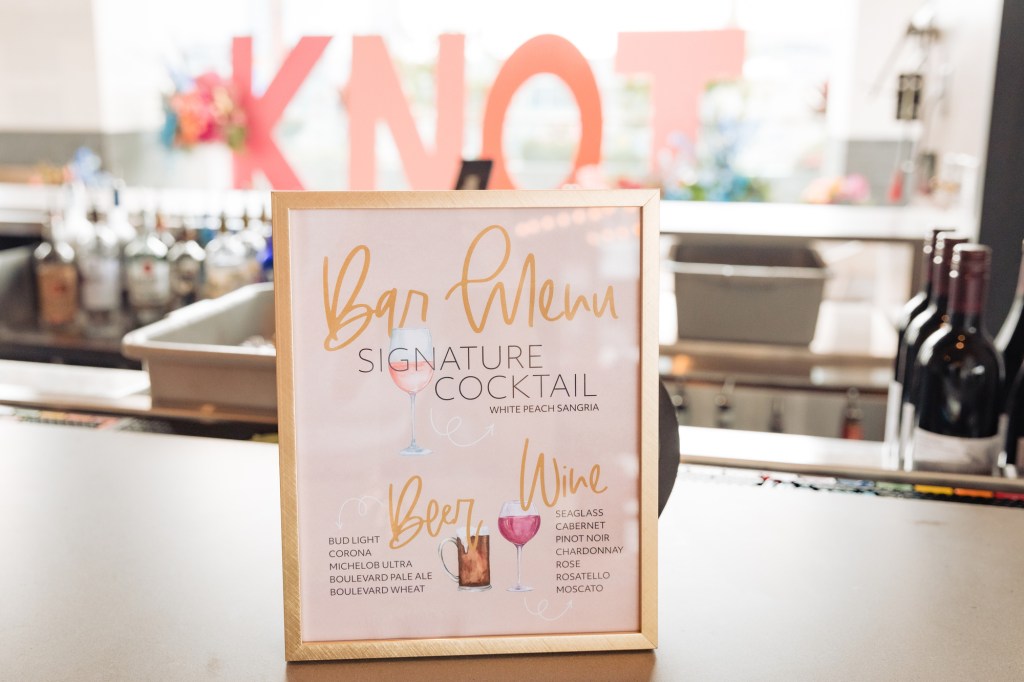 KNOT
Bar Menu
SIGNATURE
COCKTAIL
WHITE PEACH SANGRIA
Beer
BUD LIGHT
CORONA
MICHELOB ULTRA
BOULEVARD PALE ALE
BOULEVARD WHEAT
Wine
SEAGLASS
CABERNET
PINOT NOIR
CHARDONNAY
ROSE
ROSATELLO
MOSCATO